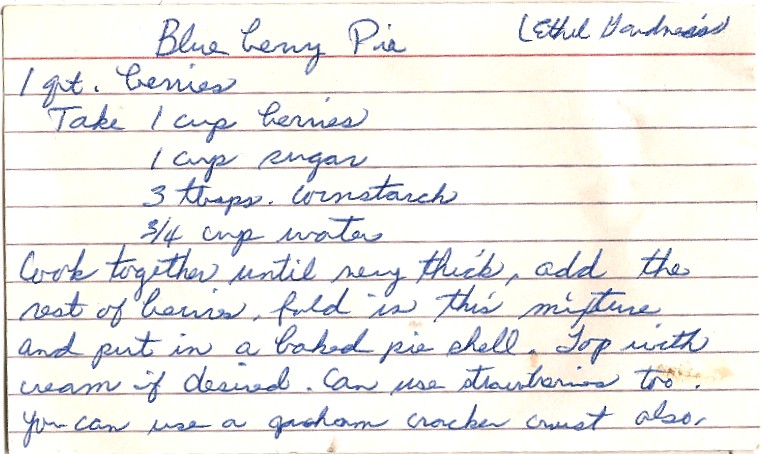 Blue berry Pie (Ethel Gardner's)
1 qt. berries
Take 1 cup berries
1 cup sugar
3 tbsps. cornstarch
3/4 cup water
Cook together until very thick, add the
rest of berries, fold in this mixture
and put in a baked pie shell. Top with
cream if desired. Can use strawberries too.
You can use a graham cracker crust also.